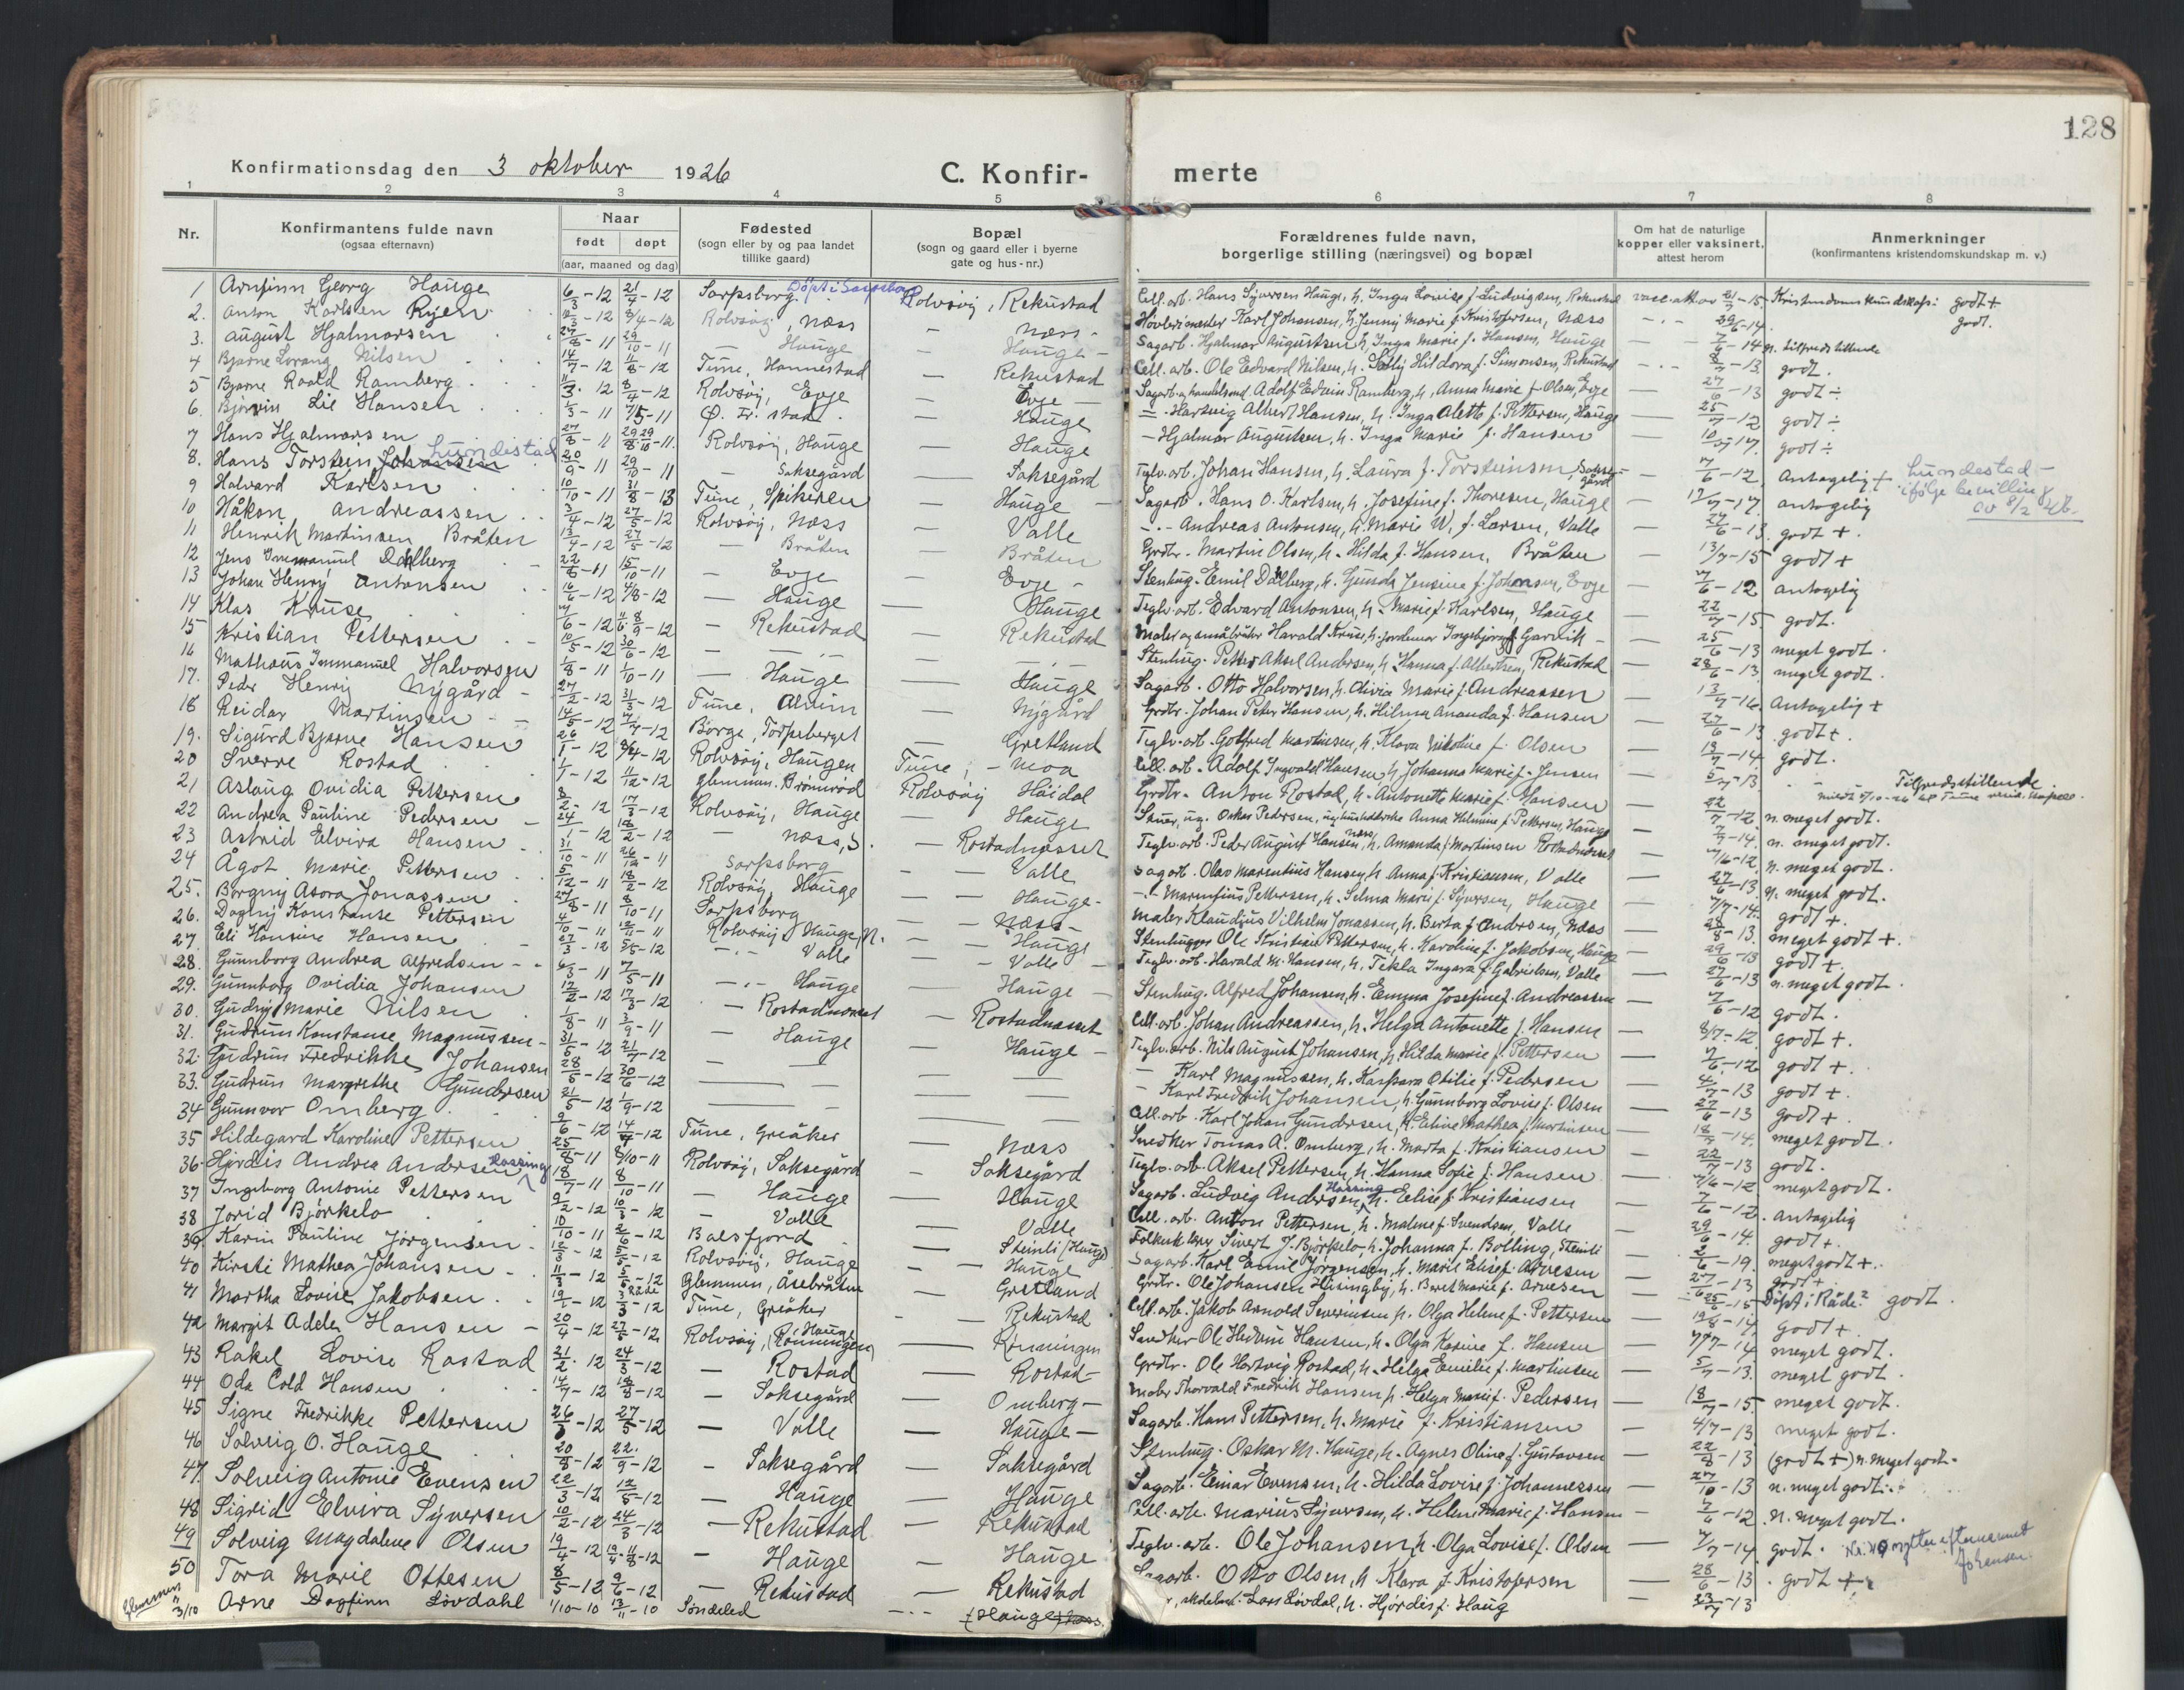 128
Konfirmationsdag den 3 oktober 1926
C. Konfir-
merte
1 2 3 4 5 6 7 8
Nr.
Konfirmantens fulde navn
(ogsaa efternavn)
Naar
født døpt
(aar, maaned og dag)
Fødested
(sogn eller by og paa landet
tillike gaard)
Bopæl
(sogn og gaard eller i byerne
gate og hus-nr.)
Forældrenes fulde navn,
borgerlige stilling (næringsvei) og bopæl
Om hat de naturlige
kopper eller vaksinert,
attest herom
Anmerkninger
(konfirmantens kristendomskundskap m. v.)
1 Arnfinn Georg Hauge 6/3-12 21/4-12 Sarpsborg. Døpt i Sarpsborg Rolvsøy, Rekustad Cell. arb. Hans Syversen Hauge, h. Inga Lovise f. Ludvigsen, Rekustad vacc. att. av 21/7-15. Kristendomskundskap: godt +
2. Anton Karlsen Ryen -12 8/4-12 Rolvsøy, Næss - Næss - Høvlerimester Karl Johansen, h. Jenny Marie f. Kristofersen, Næss 29/6-14. godt.
3. August Hjalmarsen 27/8-11 29/10-11 - Hauge - Hauge - Sagarb. Hjalmar Augustsen h. Inga Marie f. Hansen, Hauge 7/6-14 n. tilfredstillende
4 Bjarne Lorang Nilsen 14/7-12 11/8-12 Tune, Hannestad - Rekustad Cell. arb. Ole Edvard Nilsen, h. Selly Hildora f. Simonsen, Rekustad 8/7-13. godt.
5 Bjarne Roald Ramberg 11/3-12 8/4-12 Rolvsøy, Evje - Evje - Sagarb. og handelsmd. Adolf Edvin Ramberg, h. Anna Marie f. Olsen, Evje 27/6-13 godt ÷
6. Bjørvin Lie Hansen 1/3-11 7/5-11 Ø. Fr. stad. - Hauge - Hartvig Albert Hansen, h. Inga Alette f. Pettersen, Hauge 25/7-12 godt ÷
7 Hans Hjalmarsen 27/8-11 29/8 29/10-11. Rolvsøy, Hauge - Hauge - Hjalmar Augustsen, h. Inga Marie f. Hansen 10/7-17. godt ÷
8. Hans Torstein Johansen Lundestad 20/9-11 29/10-11 - Saksegård - Saksegård Tglv. arb. Johan Hansen, h. Laura f. Torsteinsen, Saksegård 7/6-12. Antagelig + Lundestad - ifølge bevilling av 8/2 26.
9 Halvard Karlsen 10/10-11 31/8-13 Tune, Spikeren - Hauge - Sagarb. Hans O. Karlsen, h. Josefine f. Thoresen, Hauge 17/7-17 antagelig
10 Håkon Andreassen 3/4-12 27/5-12 Rolvsøy, Næss - Valle - Andreas Antonsen, h. Marie W. f. Larsen, Valle 27/6-13. godt +.
11 Henrik Martinsen Bråten 13/4-12 27/5-12 - Bråten - Bråten Grdbr. Martin Olsen, h. Hilda f. Hansen, Bråten 13/7-15 godt +
12 Jens Immanuel Dahlberg 22/8-11 15/10-11 - Evje - Evje - Stenhug. Emil Dahlberg, h. Gunda Jensine f. Johansen, Evje 7/6-12 antagelig
13 Johan Henry Antonsen 16/6-12 4/8-12 - Hauge - Hauge Teglv. arb. Edvard Antonsen, h. Marie f. Karlsen, Hauge 22/7-15 godt.
14 Klas Kruse 7/6-12 8/9-12 - Rekustad - Rekustad Maler og småbruker Harald Kruse, h. jordemor Ingebjørg f. Garvik - 25/6-13 meget godt.
15 Kristian Pettersen 10/5-12 30/6-12 Stenhug. Petter Aksel Andersen, h. Hanna f. Albertsen, Rekustad 28/6-13 meget godt.
16 Mathæus Immanuel Halvorsen 1/8-11 1/10-11 - Hauge - Hauge Sagarb. Otto Halvorsen, h. Olivia Marie f. Andreassen 13/7-16. Antagelig +
17. Peder Henry Nygård 27/2-12 31/3-12 Tune, Alvim - Nygård Grdbr. Johan Peter Hansen, h. Hilma Amanda f. Hansen 27/6-13. godt +.
18 Reidar Martinsen 14/5-12 7/7-12 Borge, Torpeberget - Gretland Teglv. arb. Gotfred Martinsen, h. Klara Nikoline f. Olsen 13/7-14 godt.
19. Sigurd Bjarne Hansen 26/1-12 8/4-12 Rolvsøy, Haugen Tune, - Moa Cell. arb. Adolf Ingvald Hansen h. Johanna Marie f. Jensen 5/7-13 Tilfredsstillende
20 Sverre Rostad 1/1-12 11/2-12 Glemmen. Brønnerød Rolvsøy Håidal Grdbr. Anton Rostad, h. Antonette Marie f. Hansen 22/7-12 n. meget godt.
21 Aslaug Ovidia Pettersen 8/2-12 17/3-12 Rolvsøy, Hauge - Hauge Skuer, ug. Oskar Pedersen, ug. Anna Helmine f. Pettersen, Hauge 7/7-14. n. meget godt.
22 Andrea Pauline Pedersen 24/1-12 18/2-12 - Næss, S. - Rostadnesset Teglv. arb. Peder August Hansen, h. Amanda f. Martinsen Rostadnesset 7/6-12. n. meget godt.
23 Astrid Elvira Hansen 31/10-11 26/12-11 Sarpsborg - Valle Sagarb. Olav Marentius Hansen, h. Anna f. Kristiansen, Valle 27/6-13. n. meget godt.
24 Ågot Marie Pettersen 5/12-11 18/2-12 Rolvsøy, Hauge - Hauge - Marentius Pettersen, h. Selma Marie f. Syversen, Hauge 7/7-14. godt +.
25. Borgny Asora Jonassen 27/8-11 8/10-11 Sarpsborg - Næss - Maler Klaudius Vilhelm Jonassen, h. Berta f. Andersen, Næss 28/8-13. meget godt +.
26. Dagny Konstanse Pettersen 4/10-11 12/11-11 Rolvsøy, Hauge, N. - Hauge Stenhugger Ole Kristian Pettersen, h. Karoline f. Jakobsen, Hauge 29/6-13 godt +.
27. Eli Hansine Hansen 27/3-12 5/5-12 - Valle - Valle - Teglv. arb. Harald M. Hansen, h. Tekla Ingara f. Gabrielsen, Valle 27/6-13 n. meget godt.
28. Gunnborg Andrea Alfredsen 4/3-11 7/5-11 - Hauge - Hauge - Stenhug. Alfred Johansen, h. Emma Josefine f. Andreassen 7/6-12 godt.
29. Gunnborg Ovidia Johansen 12/2-12 17/3-12 - Rostadnesset - Rostadnesset Cell. arb. Johan Andreassen, h. Helga Antonette f. Hansen 8/7-12. godt +.
30. Gudny Marie Nilsen 1/8-11 3/9-11 - Hauge - Hauge - Teglv. arb. Nils August Johansen, h. Hilda Marie f. Pettersen 7/6-12 godt +.
31. Gudrun Konstanse Magnussen 31/5-12 21/7-12 - Karl Magnussen, h. Kaspara Otilie f. Pedersen 4/7-13 godt +
32. Gudrun Fredrikke Johansen 28/5-12 30/6-12 - Karl Fredrik Johansen, h. Gunnborg Lovise f. Olsen 27/6-13 godt +.
33. Gudrun Margrethe Gundersen 21/5-12 1/9-12 Cell. arb. Karl Johan Gundersen, h. Eline Mathea f. Martinsen 18/7-14. meget godt.
34 Gunnvor Omberg 9/6-12 14/7-12 Tune, Greåker - Næss Snedker Tomas A. Omberg, h. Marta f. Kristiansen 22/7-13 godt.
35 Hildegard Karoline Pettersen 25/8-11 8/10-11 Rolvsøy, Saksegård - Saksegård Teglv. arb. Aksel Pettersen, h. Hanna Sofie f. Hansen 7/6-12 meget godt.
36. Hjørdis Andrea Andersen Hassing 18/7-11 8/10-11 - Hauge - Hauge Sagarb. Ludvig Andersen Hassing, h. Elise f. Kristiansen 7/6-12. antagelig
37 Ingeborg Antonie Pettersen 9/2-12 10/3-12 - Valle - Valle Cell. arb. Anton Pettersen, h. Malene f. Svendsen, Valle 29/6-14. godt +.
38 Jorid Bjørkelo 10/10-11 2/6-12 Balsfjord - Steinli (Hauge) Folkeskolelærer Sivert J. Bjørkelo, h. Johanna f. Bolling, Steinli 2/6-19. meget godt +.
39. Karin Pauline Jørgensen 12/3-12 5/5-12 Rolvsøy, Hauge - Hauge Sagarb. Karl Emil Jørgensen, h. Marie Elise f. Arvesen 27/6-13 godt +
40 Kirsti Mathea Johansen 11/3-12 5/5-12 Glemmen, Åsebråten - Gretland Grdbr. Ole Johansen Hisingby, h. Beret Marie f. Arvesen 25/6-15 Døpt i Råde? godt.
41 Martha Lovise Jakobsen 19/1-12 3/3-12 Tune, Greåker - Rekustad Cell. arb. Jakob Arnold Severinsen h. Olga Helene f. Pettersen 19/8-14. godt +.
42 Margit Adele Hansen 20/4-12 27/5-12 Rolvsøy, (Hauge Rønningen) - Rønningen Snedker Ole Hedvin Hansen, h. Olga Kasine f. Hansen 7/7-14 meget godt.
43 Rakel Lovise Rostad 21/2-12 24/3-12 - Rostad - Rostad - Grdbr. Ole Hartvig Rostad, h. Helga Emilie f. Martinsen 5/7-13. meget godt.
44 Oda Cold Hansen 14/7-12 18/8-12 - Saksegård Omberg - Maler Thorvald Fredrik Hansen h. Helga Marie f. Pedersen 18/7-15 meget godt.
45 Signe Fredrikke Pettersen 26/3-12 27/5-12 - Valle Hauge - Sagarb. Hans Pettersen, h. Marie f. Kristiansen 4/7-13 meget godt.
46 Solveig O. Hauge 20/8-12 22/9-12 - Saksegård - Saksegård Stenhug. Oskar M. Hauge, h. Agnes Oline f. Gustavsen 22/8-13 (godt +) n. meget godt.
47. Solveig Antonie Evensen 22/3-12 12/5-12 - Hauge - Hauge Sagarb. Einar Evensen, h. Hilda Lovise f. Johannessen 27/10-13 n. meget godt.
48 Sigrid Elvira Syversen 10/2-12 24/3-12 - Rekustad - Rekustad Cell. arb. Marius Syversen, h. Helene Marie f. Hansen 7/6-12 n. meget godt.
49 Solveig Magdalene Olsen 19/4-12 11/8-12 - Hauge - Hauge Teglv. arb. Ole Johansen, h. Olga Lovise f. Olsen 7/7-14. godt. Nr. 49 nytter efternavnet Johansen.
50 Tora Marie Ottesen 8/5-12 9/6-12 - Rekustad - Rekustad Sagarb. Otto Olsen, h. Klara f. Kristofersen 28/6-13. godt +
Glemmen 3/10 Arne Dagfinn Løvdahl 1/10-10 13/11-10 Søndeled Hauge Næss. Lars Løvdal, h. Hjørdis f. Haug 23/7-13